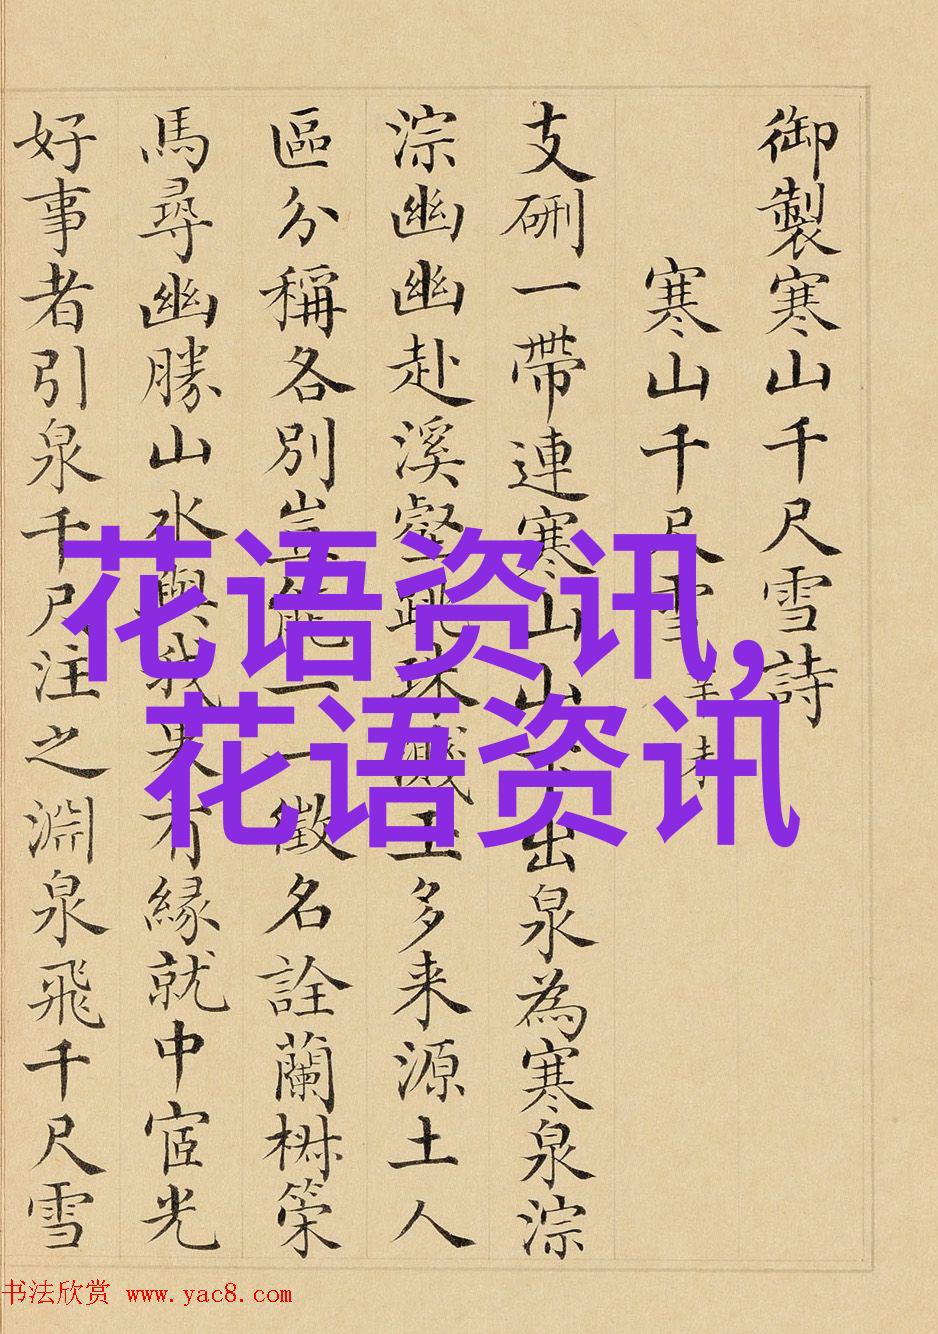 御製寒山千尺雪詩
寒山千尺雪
支硎一帶連寒山山下出泉為寒泉淙
淙幽幽赴溪壑跳珠濺玉多来源土人
區分稱各別豈能一一徵名詮蘭椒策
馬尋幽勝山水與我果有緣就中宧光
好事者引泉千尺注之淵泉飛千尺雪
花语资讯,
花语资讯
书法欣赏 www.yac8.com